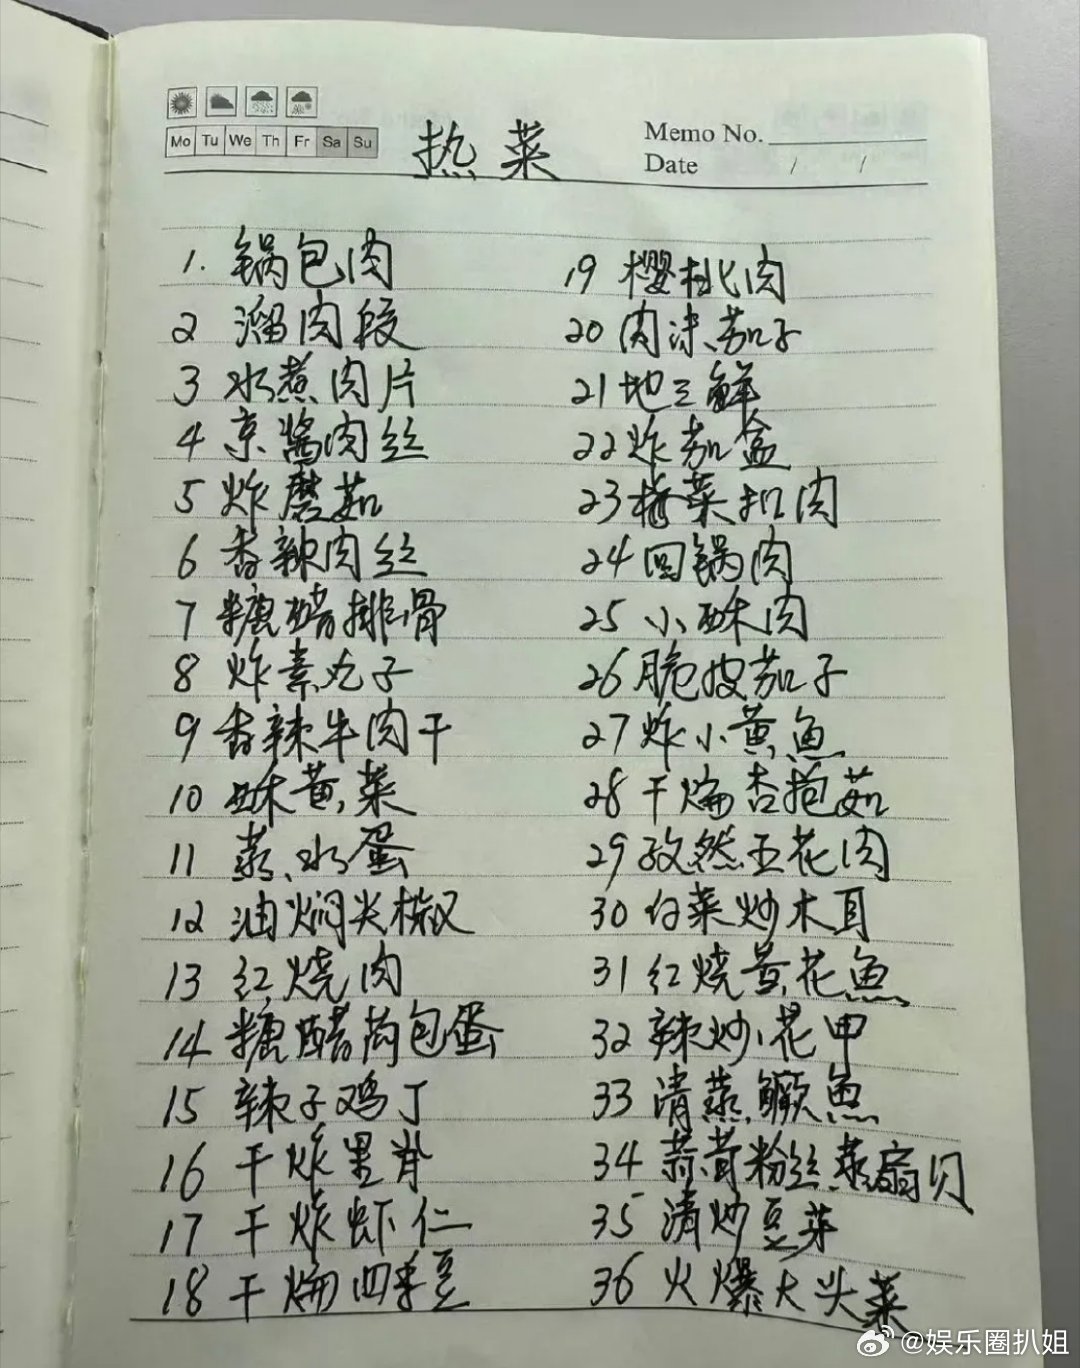 Mo Tu We Th Fr Sa Su
热菜
Memo No.
Date / /
1. 锅包肉
2 溜肉段
3 水煮肉片
4 京酱肉丝
5 炸磨菇
6 香辣肉丝
7 糖醋排骨
8 炸素丸子
9 香辣牛肉干
10 酥黄菜
11 蒸水蛋
12 油焖尖椒
13 红烧肉
14 糖醋荷包蛋
15 辣子鸡丁
16 干炸里脊
17 干炸虾仁
18 干煸四季豆
19 樱桃肉
20 肉沫茄子
21 地三鲜
22 炸茄盒
23 梅菜扣肉
24 回锅肉
25 小酥肉
26 脆皮茄子
27 炸小黄鱼
28 干煸杏抱菇
29 孜然五花肉
30 白菜炒木耳
31 红烧黄花鱼
32 辣炒花甲
33 清蒸鳜鱼
34 蒜蓉粉丝蒸扇贝
35 清炒豆芽
36 火爆大头菜
@娱乐圈扒姐